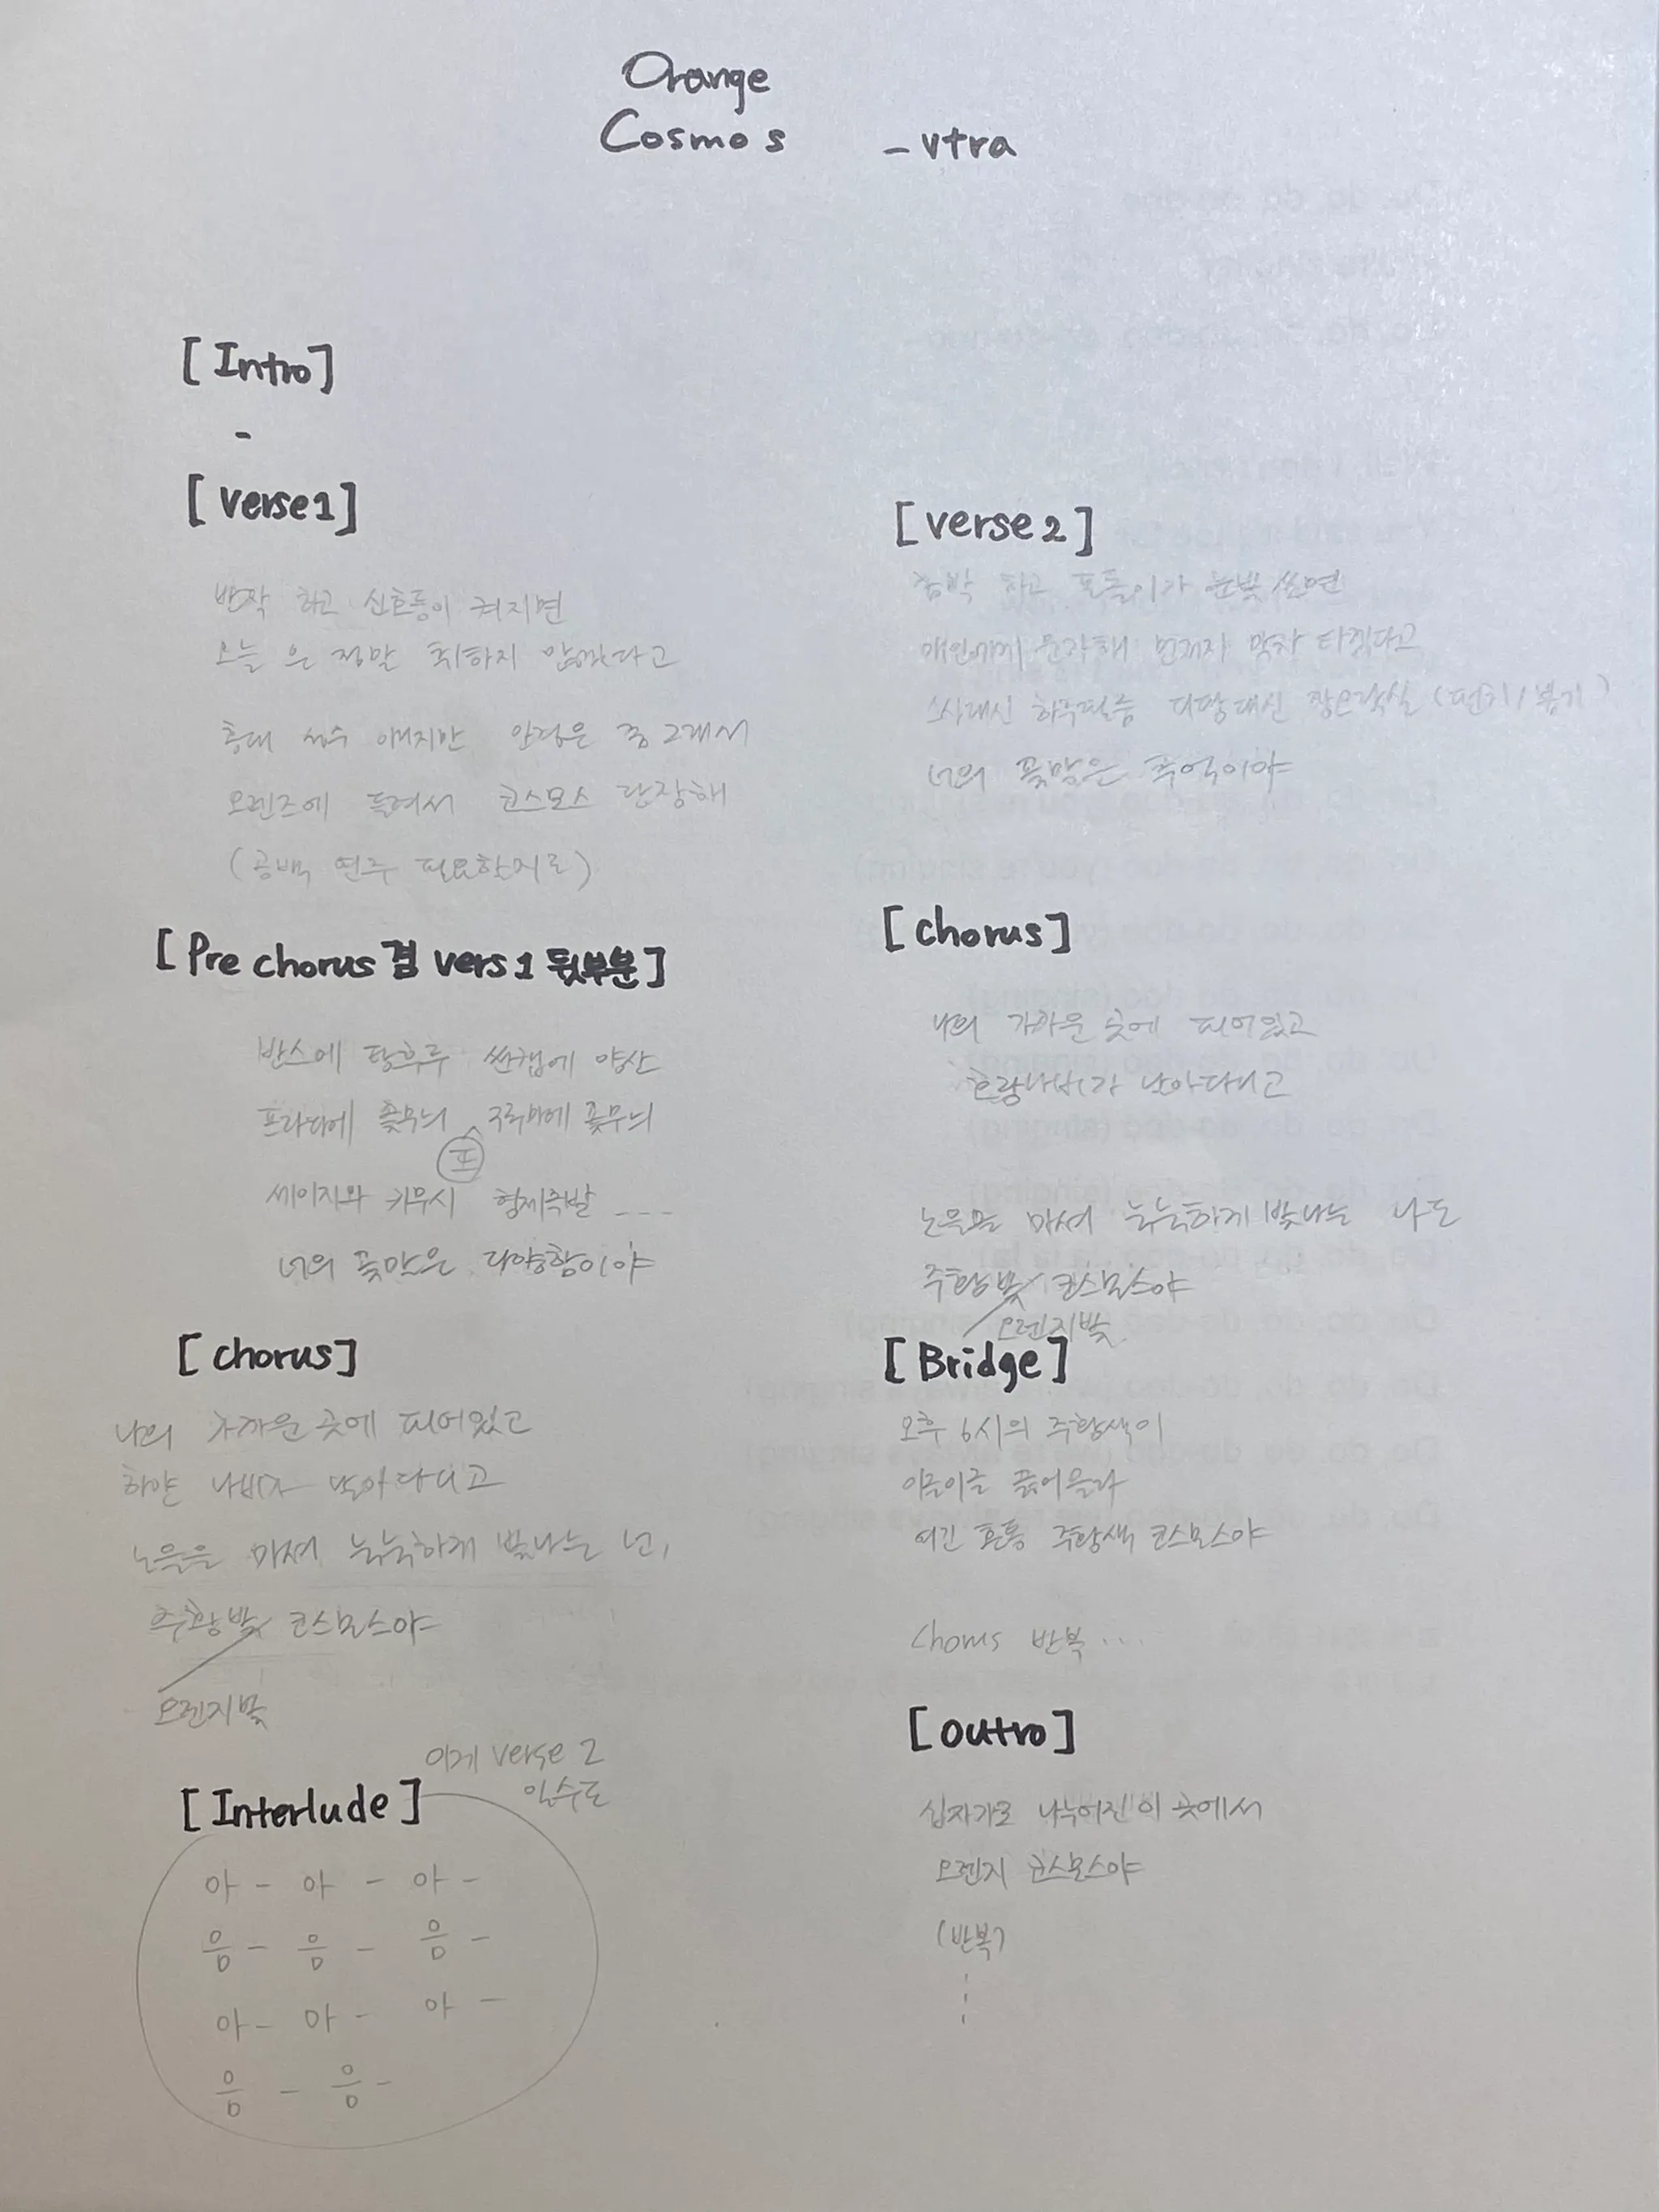 Orange
Cosmos -vtra
[Intro]
-
[verse1]
반짝 하고 신호등이 켜지면
오늘은 정말 취하지 않겠다고
홍대 성수 아니지만 안경은 중 2개서
오렌즈에 들려서 코스모스 단장해
(공백 연주 필요할지도)
[Pre chorus 겸 vers 1 뒷부분]
반스에 탕후루 썬캡에 양산
프라다에 꽃무늬 구루마에 꽃무늬
세이지와 키무시 형제족발 ---
너의 꽃말은 다양함이야
[chorus]
나의 가까운 곳에 피어있고
하얀 나비가 날아다니고
노을을 마셔 눅눅하게 빛나는 넌,
주황빛 코스모스야
오렌지빛
이게 verse 2
일수도
[Interlude]
아 - 아 - 아 -
음 - 음 - 음 -
아 - 아 - 아 -
음 - 음 -
[verse2]
깜박 하고 포돌이가 눈빛 쏘면
애인에게 문자해 먼저자 막차 타겠다고
너의 꽃말은 추억이야
[chorus]
나의 가까운 곳에 피어있고
호랑나비가 날아다니고
노을을 마셔 눅눅하게 빛나는 나도
주황빛 코스모스야
오렌지빛
[Bridge]
오후 6시의 주황색이
이글이글 끓어올라
여긴 혼통 주황색 코스모스야
Chorus 반복...
[outro]
십자가로 나누어진 이 곳에서
오렌지 코스모스야
(반복)